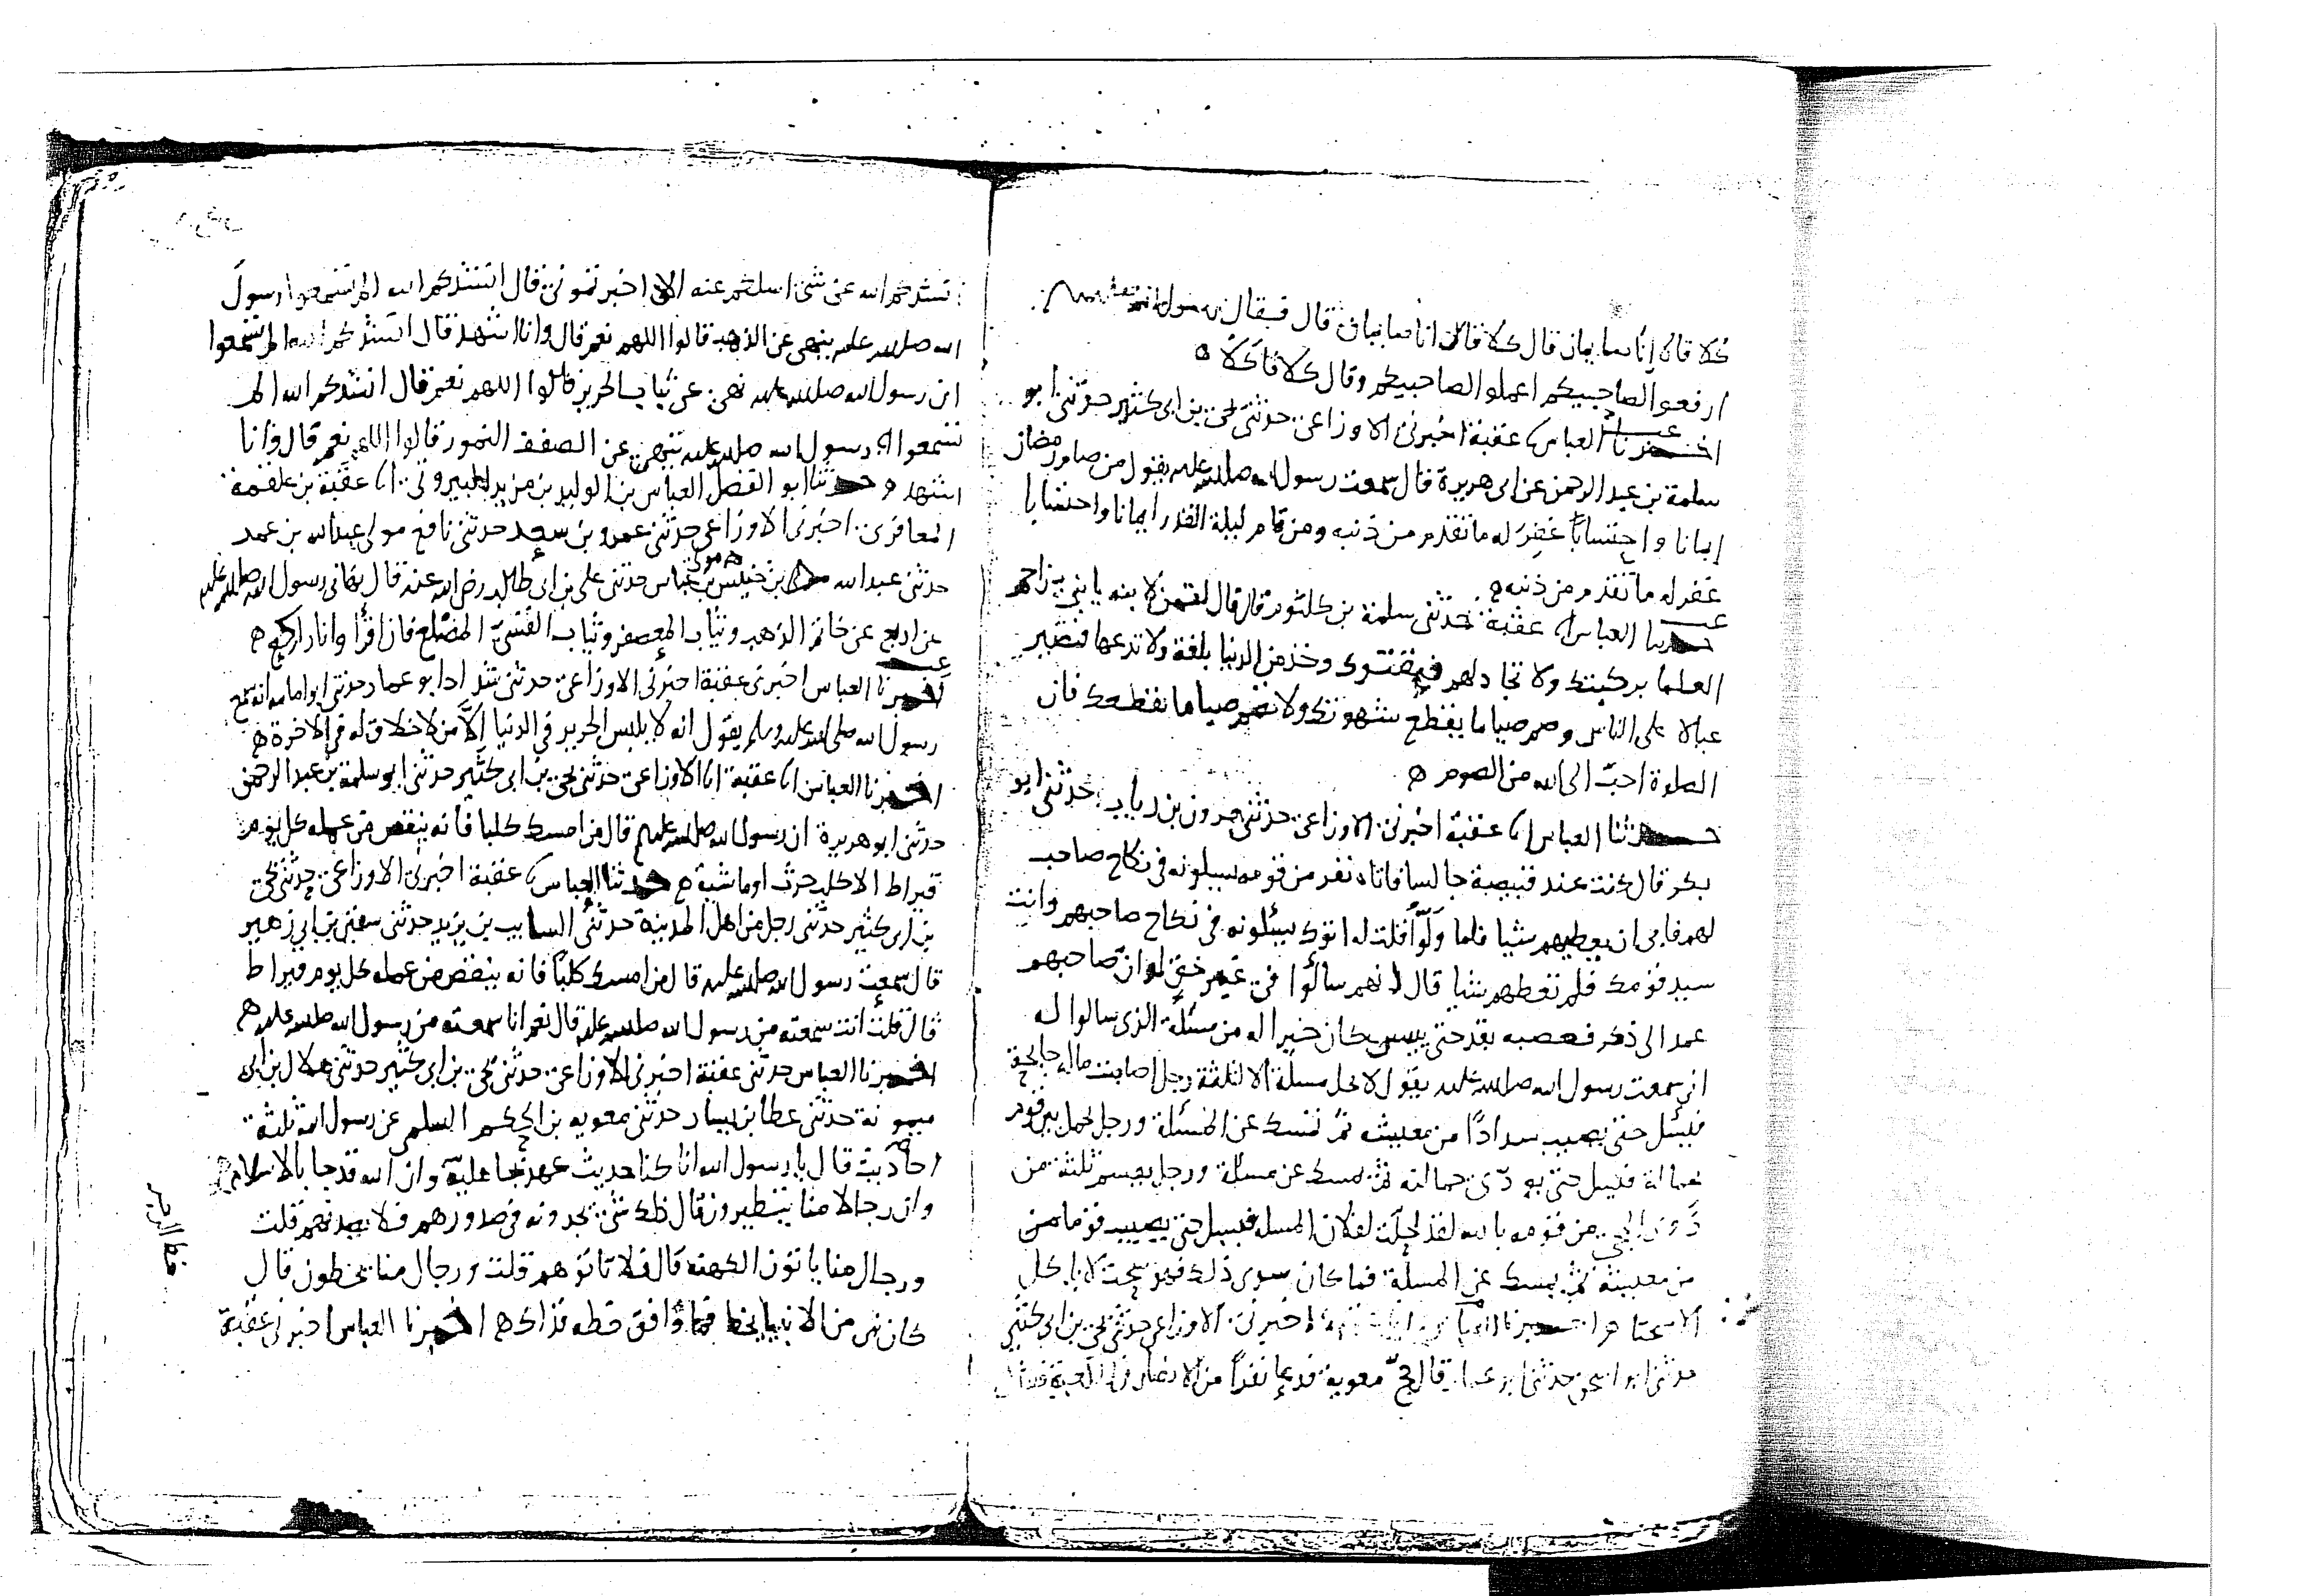 كلا قالا إنا صايمان قال كلا قالا انا صايمان قال فقال رسول الله
ارفعوا لصاحبيكم اعملوا لصاحبيكم وقال كلا فاكلا ه
اخبرنا العباس انا عقبة اخبرني الاوزاعي حدثني يحيى بن ابي كثير حدثني ابو
سلمة بن عبد الرحمن عن ابي هريرة قال سمعت رسول الله صلى الله عليه يقول من صام رمضان
إيمانا واحتسابًا غفر له ما تقدم من ذنبه ومن قام ليلة القدر ايمانا واحتسابا
غفر له ما تقدم من ذنبه ه
حدثنا العباس انا عقبة حدثني سلمة بن كلثوم قال قال لقمن لابنه يا بني زاحم
العلما بركبتك ولا تجادلهم فيمقتوك وخذ من الدنيا بلغة ولا تدعها فتصير
عيالا على الناس وصم صياما يقطع شهوتك ولا تصم صياما يقطعك فان
الصلوة احبّ الى الله من الصوم ه
حدثنا العباس انا عقبة اخبرني الاوزاعي حدثني هرون بن رياب حدثني ابو
بكر قال كنت عند قبيصة جالسا فاتاه نفر من قومه يسيلونه في نكاح صاحب
لهم فابى ان يعطيهم شيا فلما ولّوا قلت له اتوك يسئلونه في نكاح صاحبهم وانت
سيد قومك فلم تعطهم شيا قال انهم سالوا في غير حق لو ان صاحبهم
عمد الى ذكره فعصبه بقد حتى ييبس كان خيرا له من مسئلة الذي سالوا له
اني سمعت رسول الله صلى الله عليه يقول لا تحل مسلة الا لثلثة رجل اصابت ماله جايحة
فيسئل حتى يصيب سدادًا من معيشه ثم تمسك عن المسئلة ورجل تحمل بين قوم
حمالة فيسل حتى يودّي حمالته ثم يمسك عن مسئلة ورجل يقسم ثلثة من
ذوي الحجى من قومه بالله لقد حلّت لفلان المسله فيسل حتى يصيب قواما من
من معيشة ثم يمسك عن المسلة فما كان سوى ذلك فهو سحت لا ياكل
الا سحتا ه اخبرنا العباس اخبرني الاوزاعي حدثني يحيى بن ابي كثير
حدثني ابو اسحق حدثني قال حجّ معوية فدعا نفرًا من الانصار في الكعبة فقال
نشدتكم الله عن شي اسلكم عنه الا اخبرتموني قال انشدكم الله الم تسمعوا رسول
الله صلى الله عليه ينهى عن الذهب قالوا اللهم نعم قال وانا اشهد قال انشدكم الله الم تسمعوا
ان رسول الله صلى الله عليه نهى عن ثياب الحرير قالوا اللهم نعم قال انشدكم الله الم
تسمعوا رسول الله صلى الله عليه ينهى عن الصفف النمور قالوا اللهم نعم قال وانا
اشهد ه حدثنا ابو الفضل العباس بن الوليد بن مزيد البيروتي انا عقبة بن علقمة
المعافري اخبرني الاوزاعي حدثني عمرو بن سعد حدثني نافع مولى عبد الله بن عمر
حدثني عبد الله بن حنين مولى بن عباس حدثني علي بن ابي طالب رضي الله عنه قال نهاني رسول الله صلى الله عليه
عن اربع عن خاتم الذهب وثياب المعصفر وثياب القسيّ المضلع فان اقرا وانا راكع ه
اخبرنا العباس اخبرني عقبة اخبرني الاوزاعي حدثني شداد ابو عمار حدثني ابو امامة انه سمع
رسول الله صلى الله عليه وسلم يقول انه لا يلبس الحرير في الدنيا إلا من لا خلاق له في الاخرة ه
اخبرنا العباس انا عقبة انا الاوزاعي حدثني يحيى بن ابي كثير حدثني ابو سلمة بن عبد الرحمن
حدثني ابو هريرة ان رسول الله صلى الله عليه قال من امسك كلبا فانه ينقص من عمله كل يوم
قيراط الا كلب حرث او ماشية ه حدثنا العباس انا عقبة اخبرني الاوزاعي حدثني يحيى
بن ابي كثير حدثني رجل من اهل المدينة حدثني السايب بن يزيد حدثني سفين بن ابي زهير
قال سمعت رسول الله صلى الله عليه قال من امسك كلبًا فانه ينقص من عمله كل يوم قيراط
قال قلت انت سمعته من رسول الله صلى الله عليه قال نعم انا سمعته من رسول الله صلى الله عليه ه
اخبرنا العباس حدثني عقبة اخبرني الاوزاعي حدثني يحيى بن ابي كثير حدثني هلال بن ابي
ميمونة حدثني عطا بن يسار حدثني معوية بن الحكم السلمي عن رسول الله ثلثة
احاديث قال يا رسول الله انا كنا حديث عهد بجاهلية وان الله قد جا بالاسلام
وان رجالا منا يتطيرون قال ذلك شي يجدونه في صدورهم فلا يصدنهم قلت
ورجال منا ياتون الكهنه قال فلا تاتوهم قلت ورجال منا يخطون قال
كان نبي من الانبيا يخط فما وافق خطه فذاك ه اخبرنا العباس اخبرني عقبة